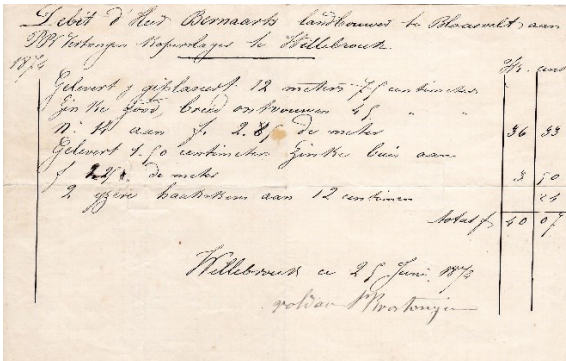 Debet d'Heer Bernaarts landbouwer te Blaasvelt aan
Koperslager te Willebroeck
1874 fr. cent
Gelevert geplaceert 12 meters 75 centimeters
Zinke goot, breed ontrouwen 45 " "
n: 14 aan f. 2.85 de meter 36 33
Gelevert 1.50 centimeters Zinke buis aan
f 2.25 de meter 3 50
2 yzere haakskens aan 12 centimen 24
total f 40 07
Willebroeck ce 25 Juni 1874
voldaan